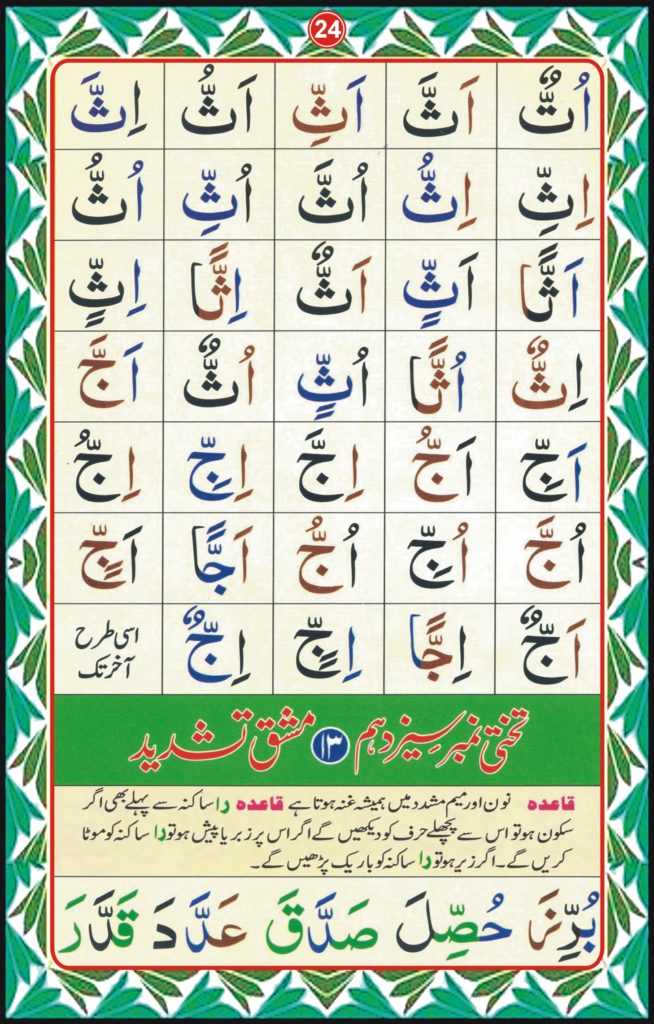 24
اُتٌّ اَثَّ اَثِّ اَثُّ اِثَّ
اِثِّ اِثُّ اُثَّ اُثِّ اُثُّ
اَثًّا اَثٍّ اَثٌّ اِثًّا اِثٍّ
اِثٌّ اُثًّا اُثٍّ اُثٌّ اَجَّ
اَجِّ اَجُّ اِجَّ اِجِّ اِجُّ
اُجَّ اُجِّ اُجُّ اَجًّا اَجٍّ
اَجٌّ اِجًّا اِجٍّ اِجٌّ اسی طرح
آخر تک
تختی نمبر سیزدہم ۱۳ مشق تشدید
قاعدہ نون اور میم مشدد میں ہمیشہ غنہ ہوتا ہے قاعدہ را ساکنہ سے پہلے بھی اگر
سکون ہو تو اس سے پچھلے حرف کو دیکھیں گے اگر اس پر زبر یا پیش ہو تو را ساکنہ کو موٹا
کریں گے۔ اگر زیر ہو تو را ساکنہ کو باریک پڑھیں گے۔
بُرِّزَ حُصِّلَ صَدَّقَ عَدَّدَ قَدَّرَ